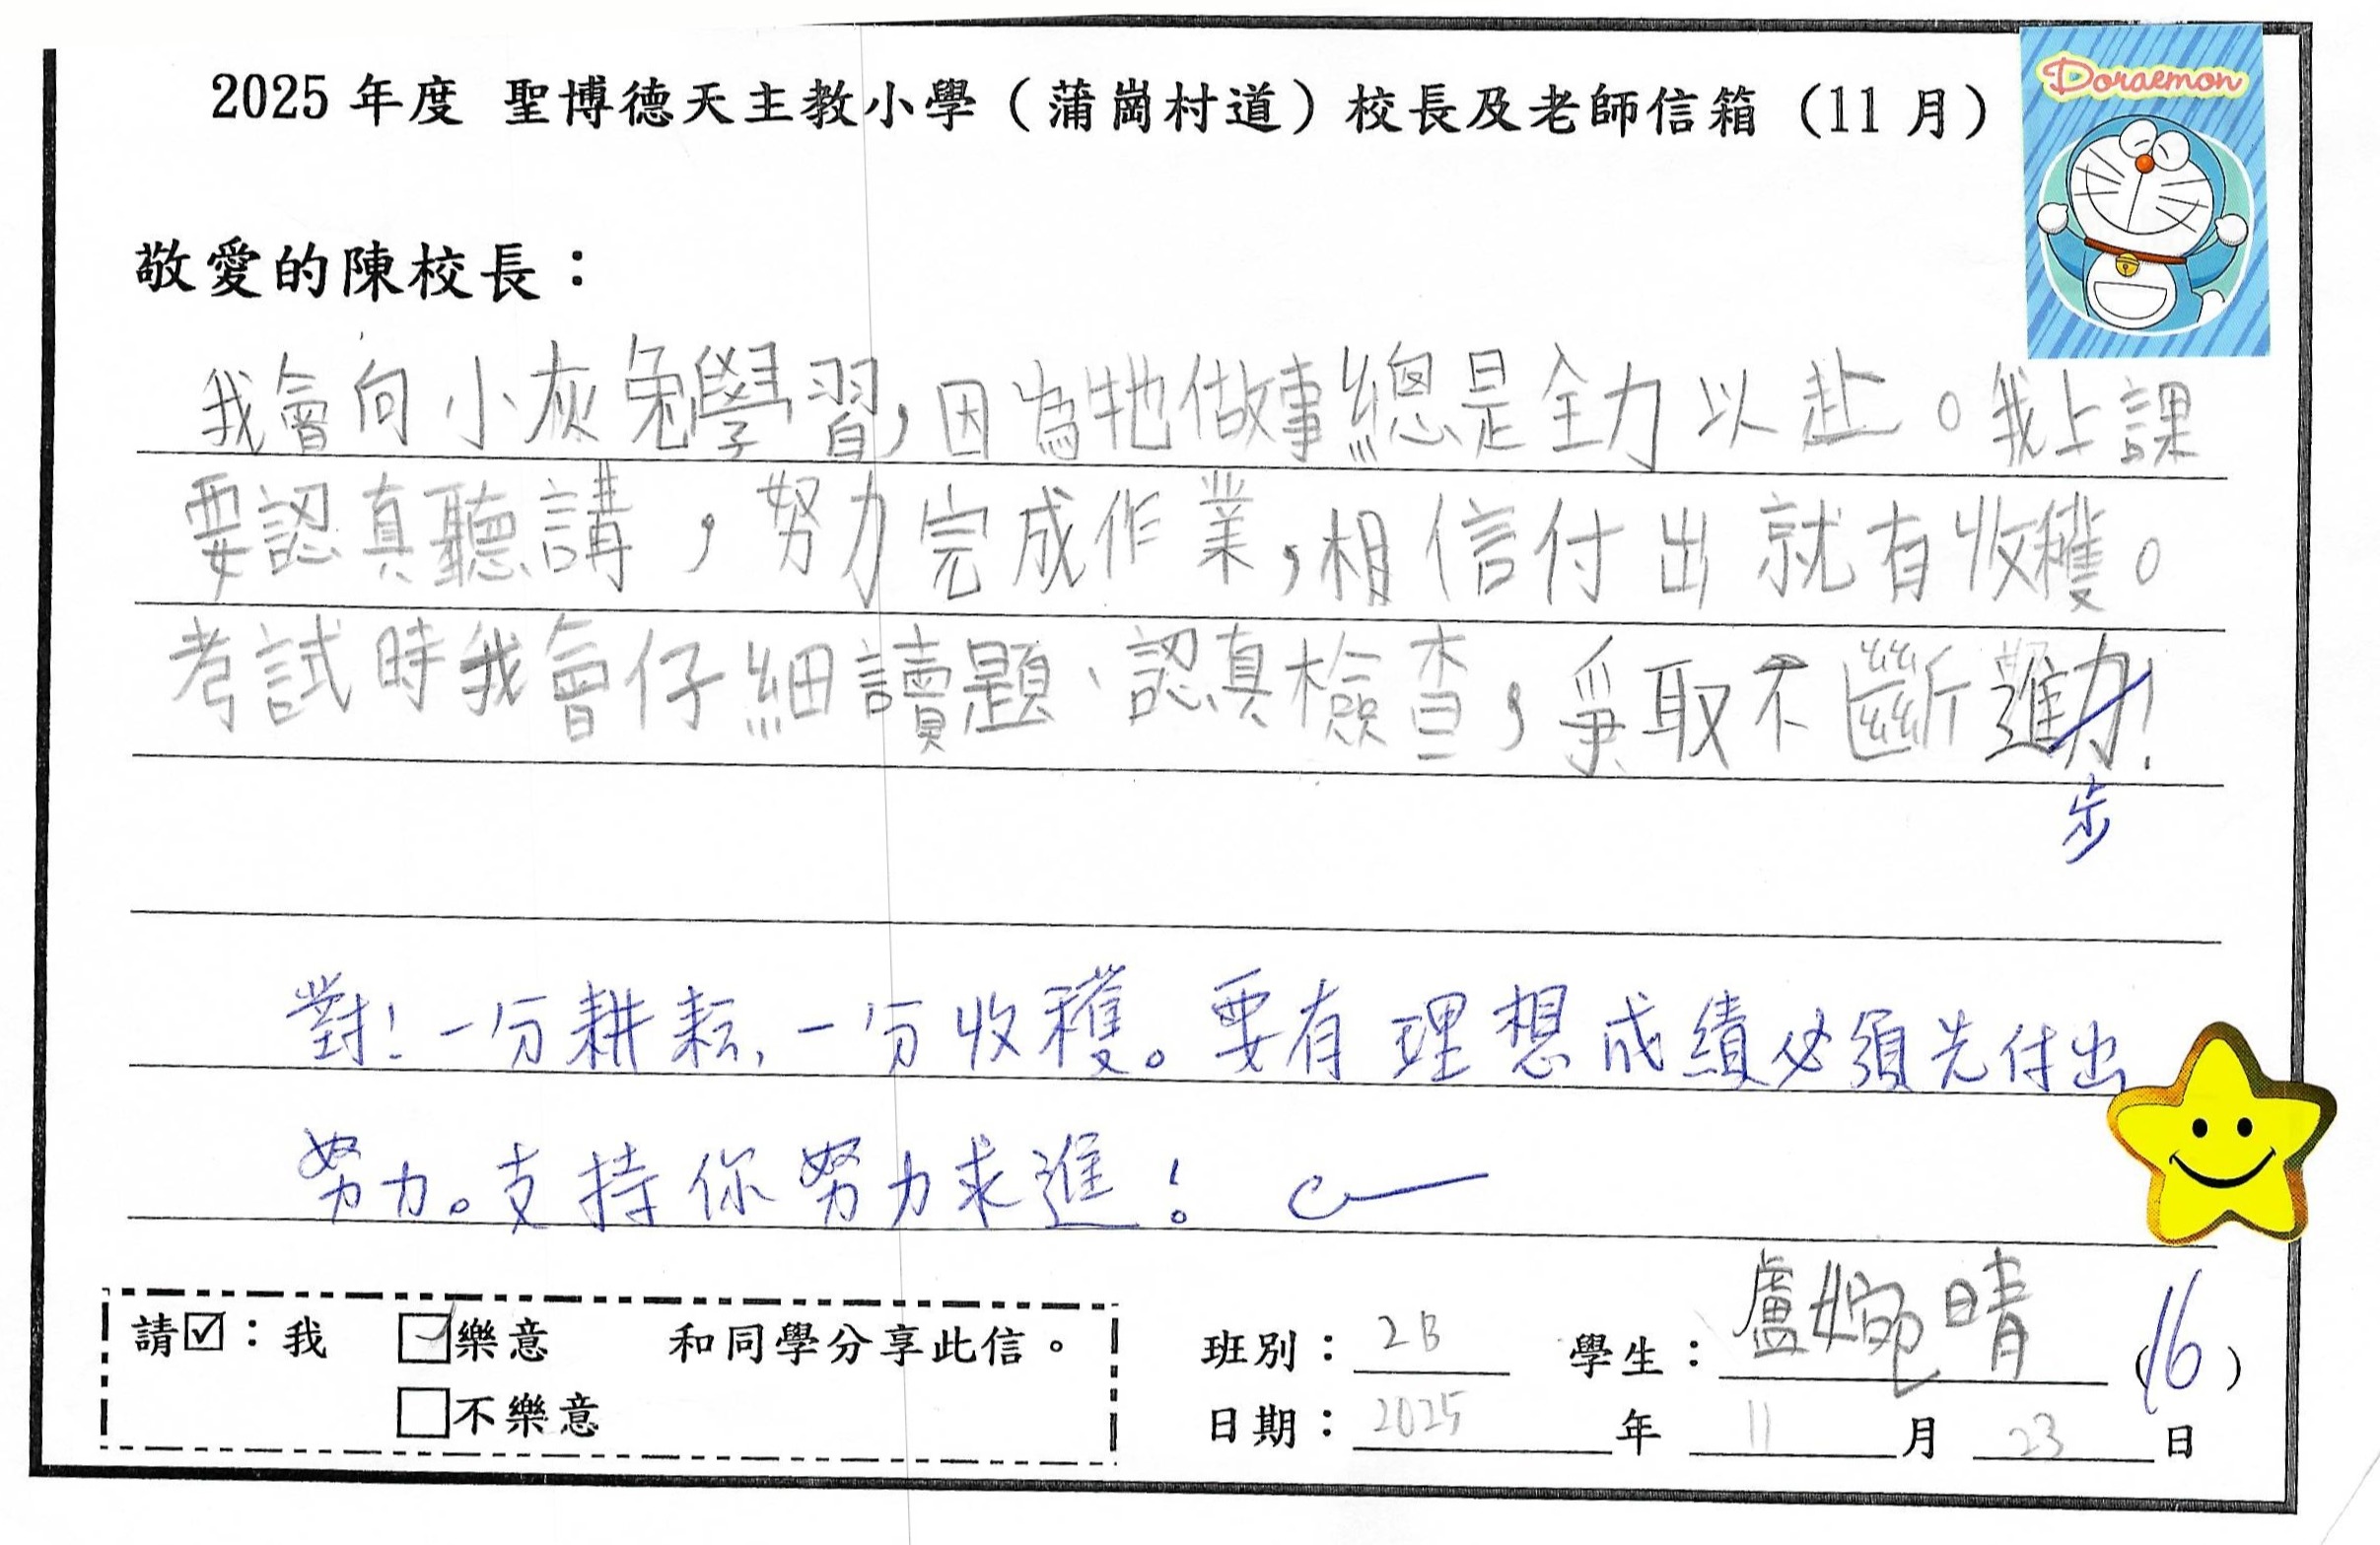 2025 年度 聖博德天主教小學（蒲崗村道）校長及老師信箱（11 月）
Doraemon
敬愛的陳校長：
我會向小灰兔學習，因為牠做事總是全力以赴。我上課
要認真聽講，努力完成作業，相信付出就有收穫。
考試時我會仔細讀題、認真檢查，爭取不斷進力！
步
對！一分耕耘，一分收穫。要有理想成績必須先付出
努力。支持你努力求進！
請☑：我 ☑樂意 和同學分享此信。
□不樂意
班別：2B 學生：盧婉晴 (16)
日期：2025 年 11 月 23 日